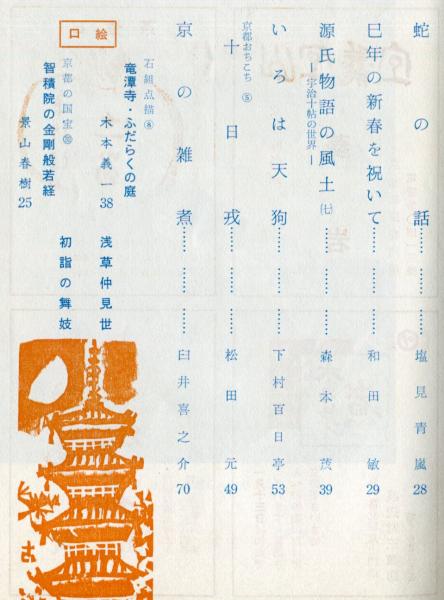 蛇の話………………塩見青嵐 28
巳年の新春を祝いて………………和田敏 29
源氏物語の風土㈦………………森本茂 39
―宇治十帖の世界―
いろは天狗………………下村百日亭 53
京都おちこち⑤
十日戎………………松田元 49
京の雑煮………………臼井喜之介 70
口絵
石組点描⑧
竜潭寺・ふだらくの庭
木本義一 38
京都の国宝⑳
智積院の金剛般若経
景山春樹 25
浅草仲見世
初詣の舞妓